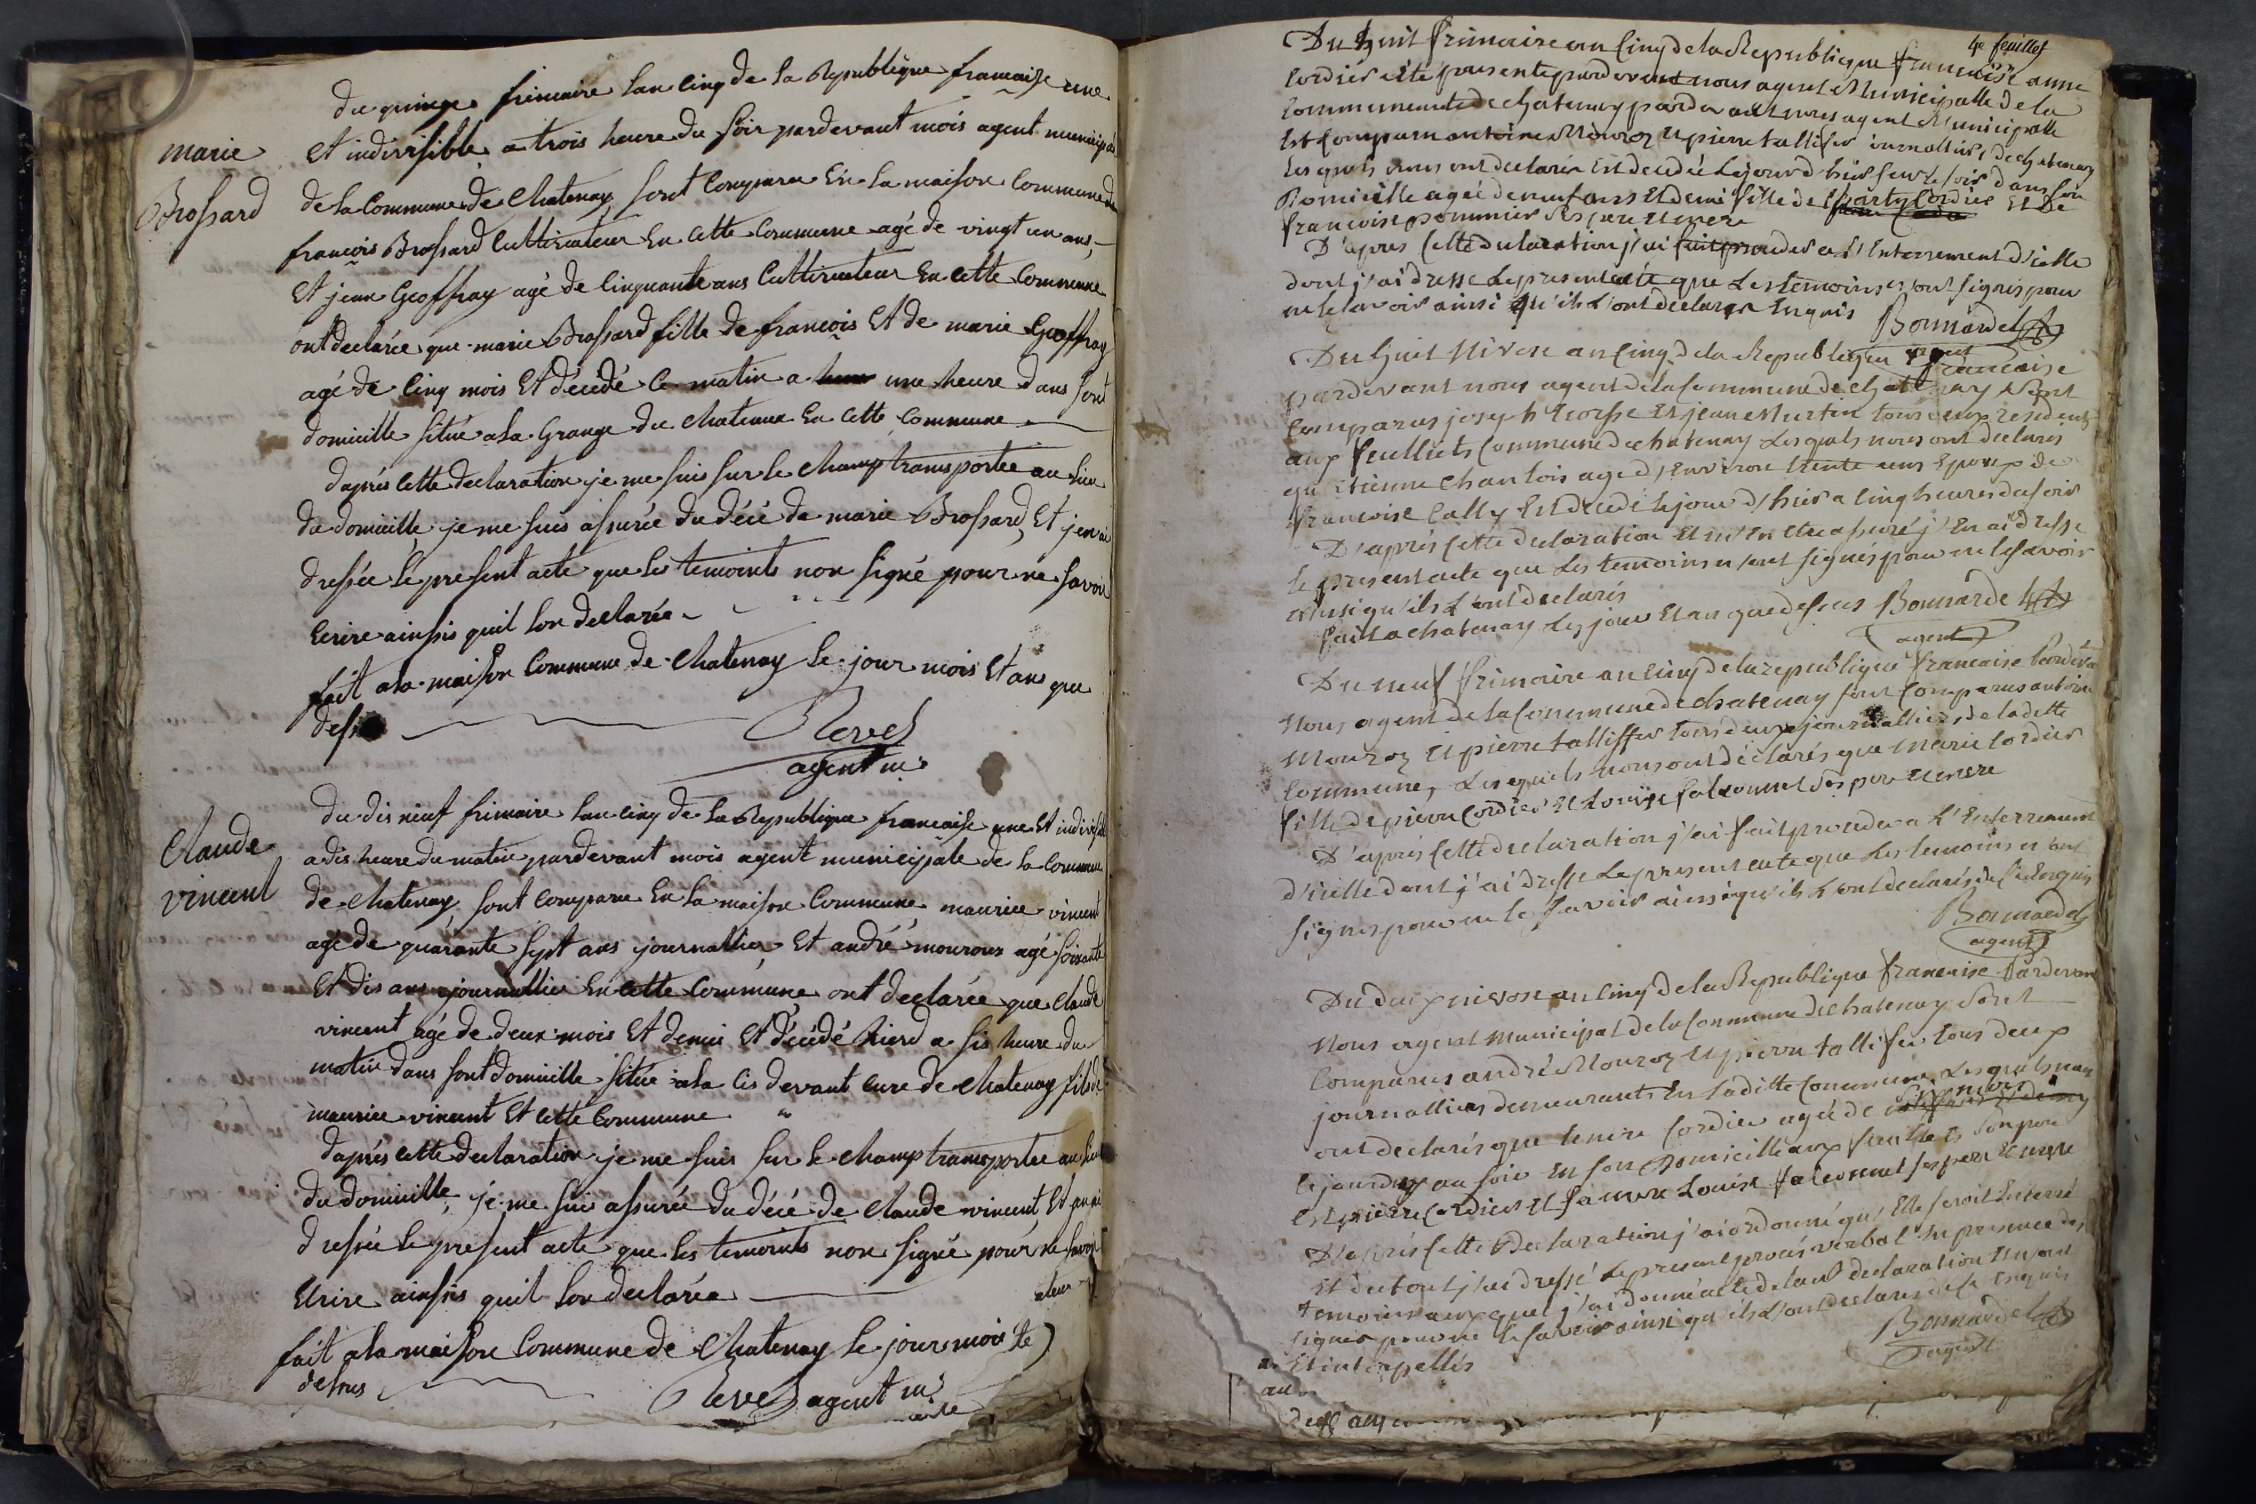 du quinze frimaire lan cinq de la Republique francaise une
et indivisible a trois heure du soir pardevant mois agent municipal
marie
Brossard
de la Commune de Chatenay sont Comparu En la maison Commune de
francois Brossard Cultivateur En Cette Commune agé de vingt un ans
Et jean Geoffray agé de Cinquante ans Cultivateur En Cette Commune
ont declarée que marie Brossard fille de francois Et de marie Geoffray
agé de Cinq mois Et décédé Ce matin a une heure dans sont
domicille situé a la Grange du Chateaux En Cette Commune
daprés Cette declaration je me suis sur le champ transportée au lieu
du domicille je me suis assurée du décé de marie Brossard Et jen ai
dressée le present acte que les temoints non signé pour ne savoir
Ecrire ainsis quil lon declarée
fait a la maison Commune de Chatenay le jour mois Et ans que
dessus
Revel
agent m
du dis neuf frimaire lan cinq de la Republique francaise une Et indivisible
Claude
vincent
a dis heure du matin pardevant mois agent municipale de la Commune
de Chatenay sont Comparu En la maison Commune maurice vincent
agé de quarante sept ans journallier Et andré mouroux agé soixante
Et dis ans journallier En Cette Commune ont declarée que Claude
vincent agé de deux mois Et demie Et décédé hierd a sis heure du
matin dans sont domicille située a la Cis devant Cure de Chatenay fils de
maurice vincent Et Cette Commune
daprés Cette declaration je me suis sur le champ transportée au lieu
du domicille, je me suis assurée du décé de Claude vincent Et jen ai
dressée le present acte que les temoints non signée pour ne savoir
Ecrire ainsis quil lon declarée
fait a la maison Commune de Chatenay le jour mois Et
dessus
Revel agent m
4e feuillet
Du huit frimaire an Cinq de la Republique francaise anne
Cordier a été presente pardevant nous agent Municipalle de la
Commune de Chatenay pardevant nous agent Municipalle
Est Comparu antoine Mouroz Et pierre tallifer journalliers de Chatenay
Lesquels nous ont declarés Est decedée Le jour d'hier sur le soir dans son
Domicille agée de neuf ans Et demi fille de Cordier Et De
francoise pommier Ses pere Et mere
D'apres Cette declaration j'ai fait proceder a L'Enterrement d'icelle
dont j'ai dressé Le present acte que Les temoins n'ont signés pour
ne le savoir ainsi qu'ils L'ont declarer Enquis
Bonnardel
agent
Du huit Nivose an Cinq de la Republique francaise
pardevant nous agent de la Commune de Chatenay Sont
Comparus joseph Et jean Martin tous deux residents
aux feuillets Commune de Chatenay Lesquels nous ont declarés
que Etienne Chantois agé d'Environ trente ans Epoux de
francoise Cally Est decedé Le jour d'hier a Cinq heures du soir
D'aprés Cette declaration Et m'En Etre assuré j'En ai dressé
le present acte que Les temoins n'ont signés pour ne le savoir
ainsi qu'ils L'ont declarés
fait a Chatenay Les jour Et an que dessus
Bonnardel
agent
Du neuf frimaire an Cinq de la republique francaise Pardevant
Nous agent de la Commune de Chatenay sont Comparus antoine
Mouroz Et pierre tallisfer tous deux journalliers de la ditte
Commune, Lesquels nous ont déclarés que Marie Cordier
fille de pierre Cordier Et Louise falconnet Ses pere Et mere
D'aprés Cette declaration j'ai fait proceder a L'Enterrement
d'icelle dont j'ai dressé Le present acte que Les temoins n'ont
signés pour ne le savoir ainsi qu'ils L'ont declarés de Ce Enquis
Bonnardel
agent
Du deux nivose an Cinq de la Republique francaise Pardevant
Nous agent Municipal de la Commune de Chatenay Sont
Comparus andré Mouroz Et pierre tallifer tous deux
journalliers demeurants En la ditte Commune Lesquels nous
ont declarés que Cordier agée de
le jourduy au soir En son Domicille aux feuillets Son pere
Est pierre Cordier Et sa mere Louise falconnet ses pere Et mere
D'aprés Cette Declaration j'ai ordonné qu'Elle seroit Enterré
Et du tout j'ai dressé Le present procés verbal En presence des
temoins auxquel j'ai donné acte de Leur declaration
signer pour ne le savoir ainsi qu'ils L'ont declarés de Ce Enquis
Et interpellés
Bonnardel
agent